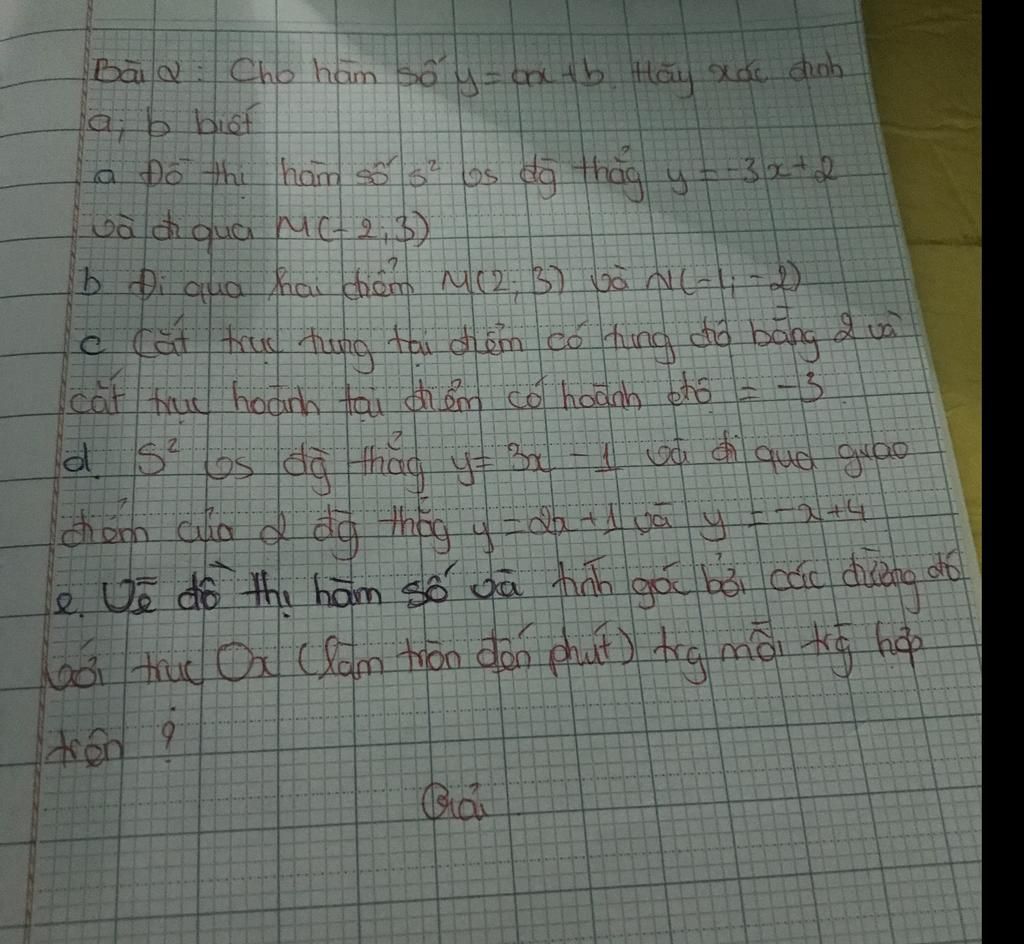 Bài 2: Cho hàm số y = ax + b. Hãy xác định
a; b biết
a Đồ thị hàm số s² vs đg thẳg y = -3x + 2
và đi qua M(-2; 3)
b Đi qua hai điểm M(2; 3) và N(-1; -2)
c Cắt trục tung tại điểm có tung độ bằng 2 và
cắt trục hoành tại điểm có hoành độ = -3
d S² vs đg thẳg y = 3x - 1 và đi qua giao
điểm của 2 đg thẳg y = 2x + 1 và y = -x + 4
e. Vẽ đồ thị hàm số và tính góc bởi các đường đó
với trục Ox (làm tròn đến phút) trg mỗi trg hợp
trên ?
Giải